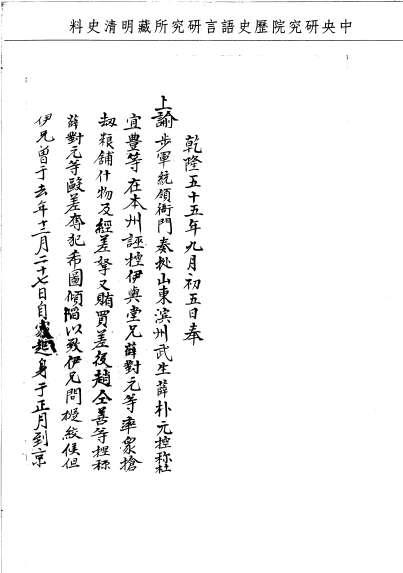 中央研究院歷史語言研究所藏明清史料
乾隆五十五年九月初五日奉
上諭步軍統領衙門奏據山東濱州武生薛朴元控稱杜
宜豊等在本州誣控伊與堂兄薛對元等率衆搶
刼粮舖什物及經差拏又賄買差役趙仝善等捏称
薛對元等毆差奪犯希圖傾陷以致伊兄問擬絞候但
伊兄曾于去年十二月二十七日自家起身于正月到京